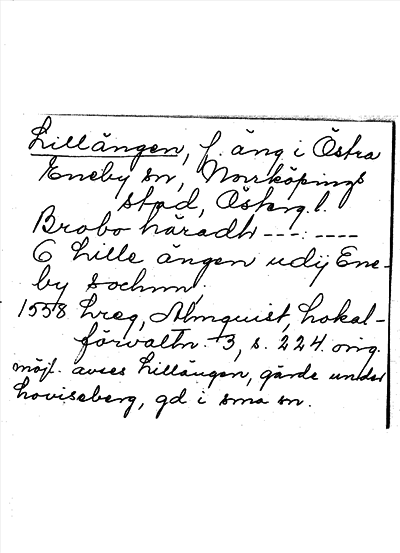 Lillängen, f. äng i Östra
Eneby sn, Norrköpings
stad, Östergl.
Brobo häradh ---:----
6 Lille ängen udij Ene-
by sochnn,
1558 Lreg, Almquist, Lokal-
förvaltn. 3, s. 224. orig.
möjl. avses Lillängen, gärde under
Loviseberg, gd i sma sn.